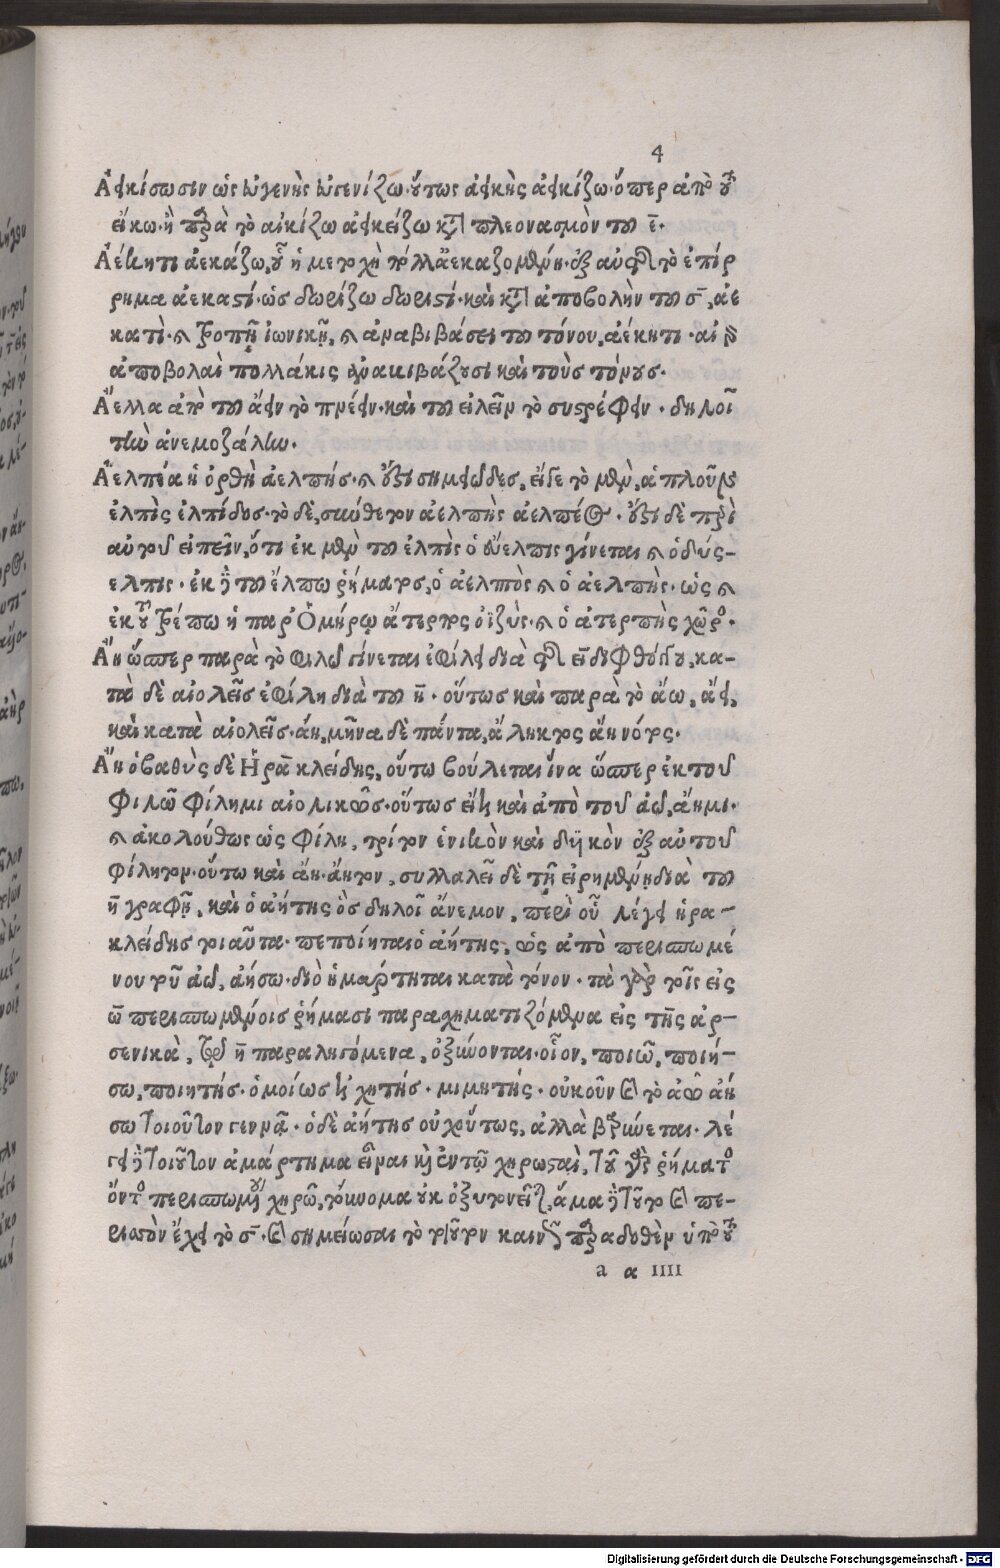 4
Ἀεικίσωσιν ὡς εὐγενὴς εὐγενίζω· οὕτως ἀεικὴς ἀεικίζω· ὅπερ ἀπὸ τοῦ
εἴκω· ἢ παρὰ τὸ αἰκίζω ἀεικείζω κατὰ πλεονασμὸν τοῦ ε̄.
Ἀέκητι ἀεκάζω, οὗ ἡ μετοχὴ πόλλ' ἀεκαζομένη· ἐξ αὐτοῦ τὸ ἐπίρ
ρημα ἀεκαστί· ὡς δωρίζω δωριστί· καὶ κατὰ ἀποβολὴν τοῦ σ̄, ἀε
κατὶ· καὶ τροπῇ ἰωνικῇ, καὶ ἀναβιβάσει τοῦ τόνου, ἀέκητι· αἱ γὰρ
ἀποβολαὶ πολλάκις ἀνακιβάζουσι καὶ τοὺς τόνους.
Ἄελλα ἀπὸ τοῦ ἄειν τὸ πνέειν· καὶ τοῦ εἰλεῖν τὸ συστρέφειν. δηλοῖ
τὴν ἀνεμοζάλην.
Ἀελπέα ἡ ὀρθὴ ἀελπής· καὶ ἔστι σημειῶδες, εἴδε τὸ μὲν, ἁπλοῦν
ἐλπὶς ἐλπίδος· τὸ δὲ, σύνθετον ἀελπὴς ἀελπέος. ἔστι δὲ περὶ
αὐτοῦ εἰπεῖν, ὅτι ἐκ μὲν τοῦ ἐλπὶς ὁ εὔελπις γίνεται καὶ ὁ δύσ-
ελπις· ἐκ δὲ τοῦ ἔλπω ῥήματος, ὁ ἀελπὸς καὶ ὁ ἀελπής· ὡς καὶ
ἐκ τοῦ τρέπω ἡ παρ Ὁμήρῳ ἄτερπος ὀϊζὺς· καὶ ὁ ἀτερπὴς χῶρος.
Ἄη ὥσπερ παρὰ τὸ φιλῶ γίνεται ἐφίλει διὰ τῆς ει διφθόγγου, κα-
τὰ δὲ αἰολεῖς ἐφίλη διὰ τοῦ η̄· οὕτως καὶ παρὰ τὸ ἄω, ἄει,
καὶ κατὰ αἰολεῖς· ἄη, μῆνα δὲ πάντα, ἄληκτος ἄη νότος.
Ἄη ὁ βαθὺς δὲ Ἡρᾶ κλείδης, οὕτω βούλεται ἵνα ὥσπερ ἐκ τοῦ
φιλῶ φίλημι αἰολικῶς· οὕτως εἴη καὶ ἀπὸ τοῦ ἀῶ, ἄημι·
καὶ ἀκολούθως ὡς φίλη, τρίτον ἑνικὸν καὶ δυϊκὸν ἐξ αὐτοῦ
φίλητον· οὕτω καὶ ἄη· ἄητον, συλλαλεῖ δὲ τῇ εἰρημένῃ διὰ τοῦ
η̄ γραφῇ, καὶ ὁ ἀήτης ὃς δηλοῖ ἄνεμον, περὶ οὗ λέγει ἡρα-
κλείδης τοιαῦτα· πεποίηται ὁ ἀήτης, ὡς ἀπὸ περισπωμέ
νου τοῦ ἀῶ, ἀήσω· διὸ ἡμάρτηται κατὰ τόνον· τὰ γὰρ τοῖς εἰς
ω̄ περισπωμένοις ῥήμασι παρασχηματιζόμενα εἰς της ἀρ-
σενικὰ, τῷ η̄ παραληγόμενα, ὀξύνονται· οἷον, ποιῶ, ποιή-
σω, ποιητής· ὁμοίως καὶ χητής· μιμητής· οὐκοῦν καὶ τὸ ἀῶ ἀή
σω τοιοῦτον γεννᾷ· ὁ δὲ ἀήτης οὐχ οὕτως, ἀλλὰ βαρύνεται· λέ
γει δὲ τοιοῦτον ἁμάρτημα εἶναι καὶ ἐν τῷ χηρωσταὶ, τοῦ γὰρ ῥήματος
ὄντος περισπωμένου χηρῶ, τοὔνομα οὐκ ὀξυτονεῖται, ἅμα δὲ τοῦτο καὶ πε-
ρισσὸν ἔχει τὸ σ̄· καὶ σημείωσαι τὸ τοιοῦτον καινῶς παραδοθὲν ὑπὸ τοῦ
a α IIII
Digitalisierung gefördert durch die Deutsche Forschungsgemeinschaft - DFG